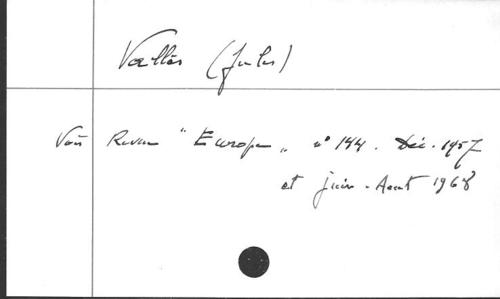 Vallès (Jules)
Voir Revue "Europe" n° 144. Déc. 1957
et juin - Août 1968